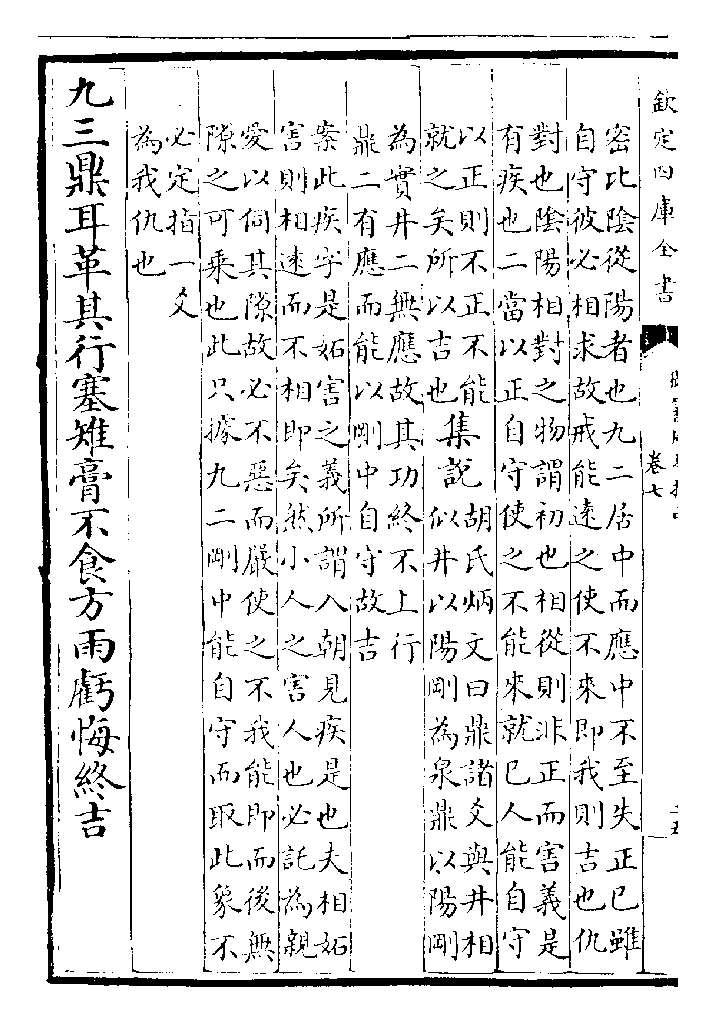 欽定四庫全書
卷七
密比陰從陽者也九二居中而應中不至失正已雖
自守彼必相求故戒能逺之使不來即我則吉也仇
對也陰陽相對之物謂初也相從則非正而害義是
有疾也二當以正自守使之不能來就已人能自守
以正則不正不能
就之矣所以吉也
集說
胡氏炳文曰鼎諸爻與井相
似井以陽剛為泉鼎以陽剛
為實井二無應故其功終不上行
鼎二有應而能以剛中自守故吉
案此疾字是妬害之義所謂入朝見疾是也夫相妬
害則相逺而不相即矣然小人之害人也必託為親
愛以伺其隙故必不惡而嚴使之不我能即而後無
隙之可乘也此只據九二剛中能自守而取此象不
必定指一爻
為我仇也
九三鼎耳革其行塞雉膏不食方雨虧悔終吉